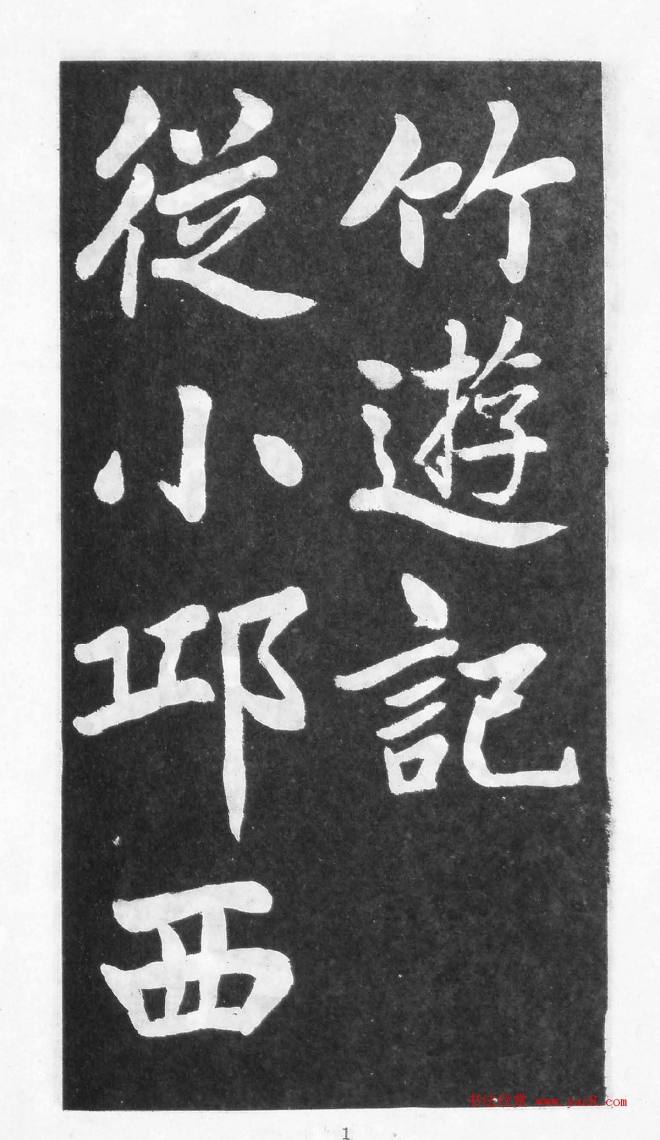 竹遊記
從小邱西
书法欣赏 www.yac8.com
1